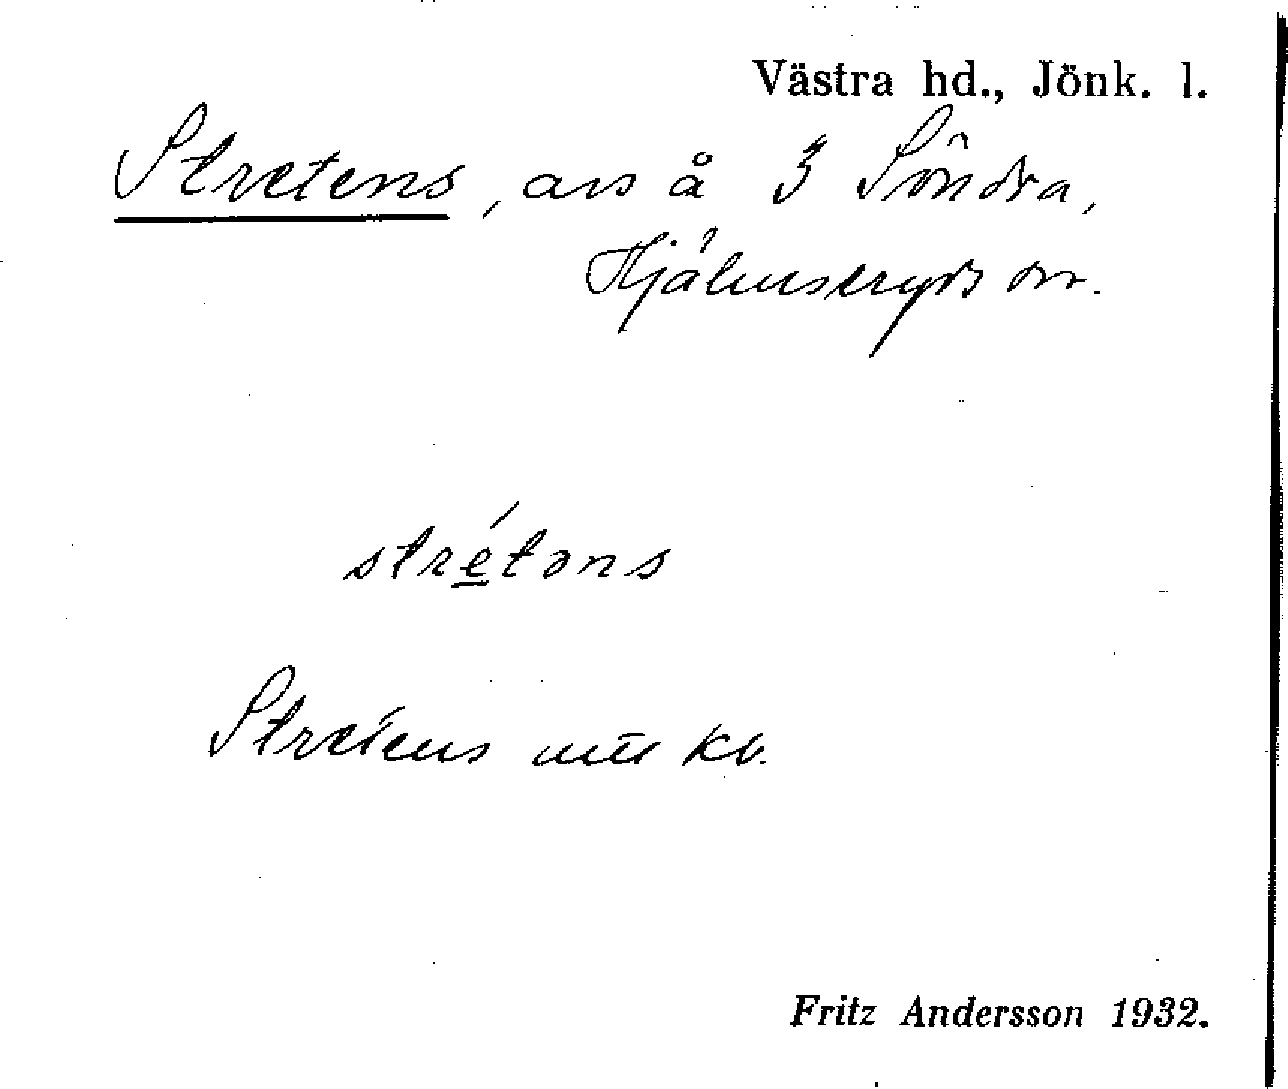 Västra hd., Jönk. l.
Stretens, avs å 3 Söndra,
Hjälmseryds sn.
stre̲´təns
Stretens mtl kb.
Fritz Andersson 1932.